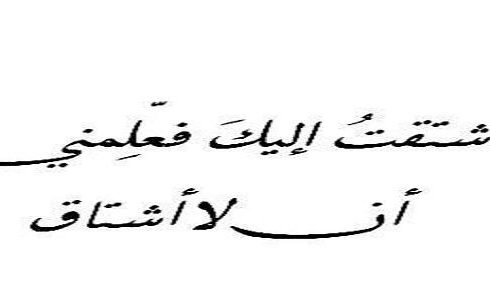 شتقتُ إليكَ فعّلِمني
أن لا أشتاق